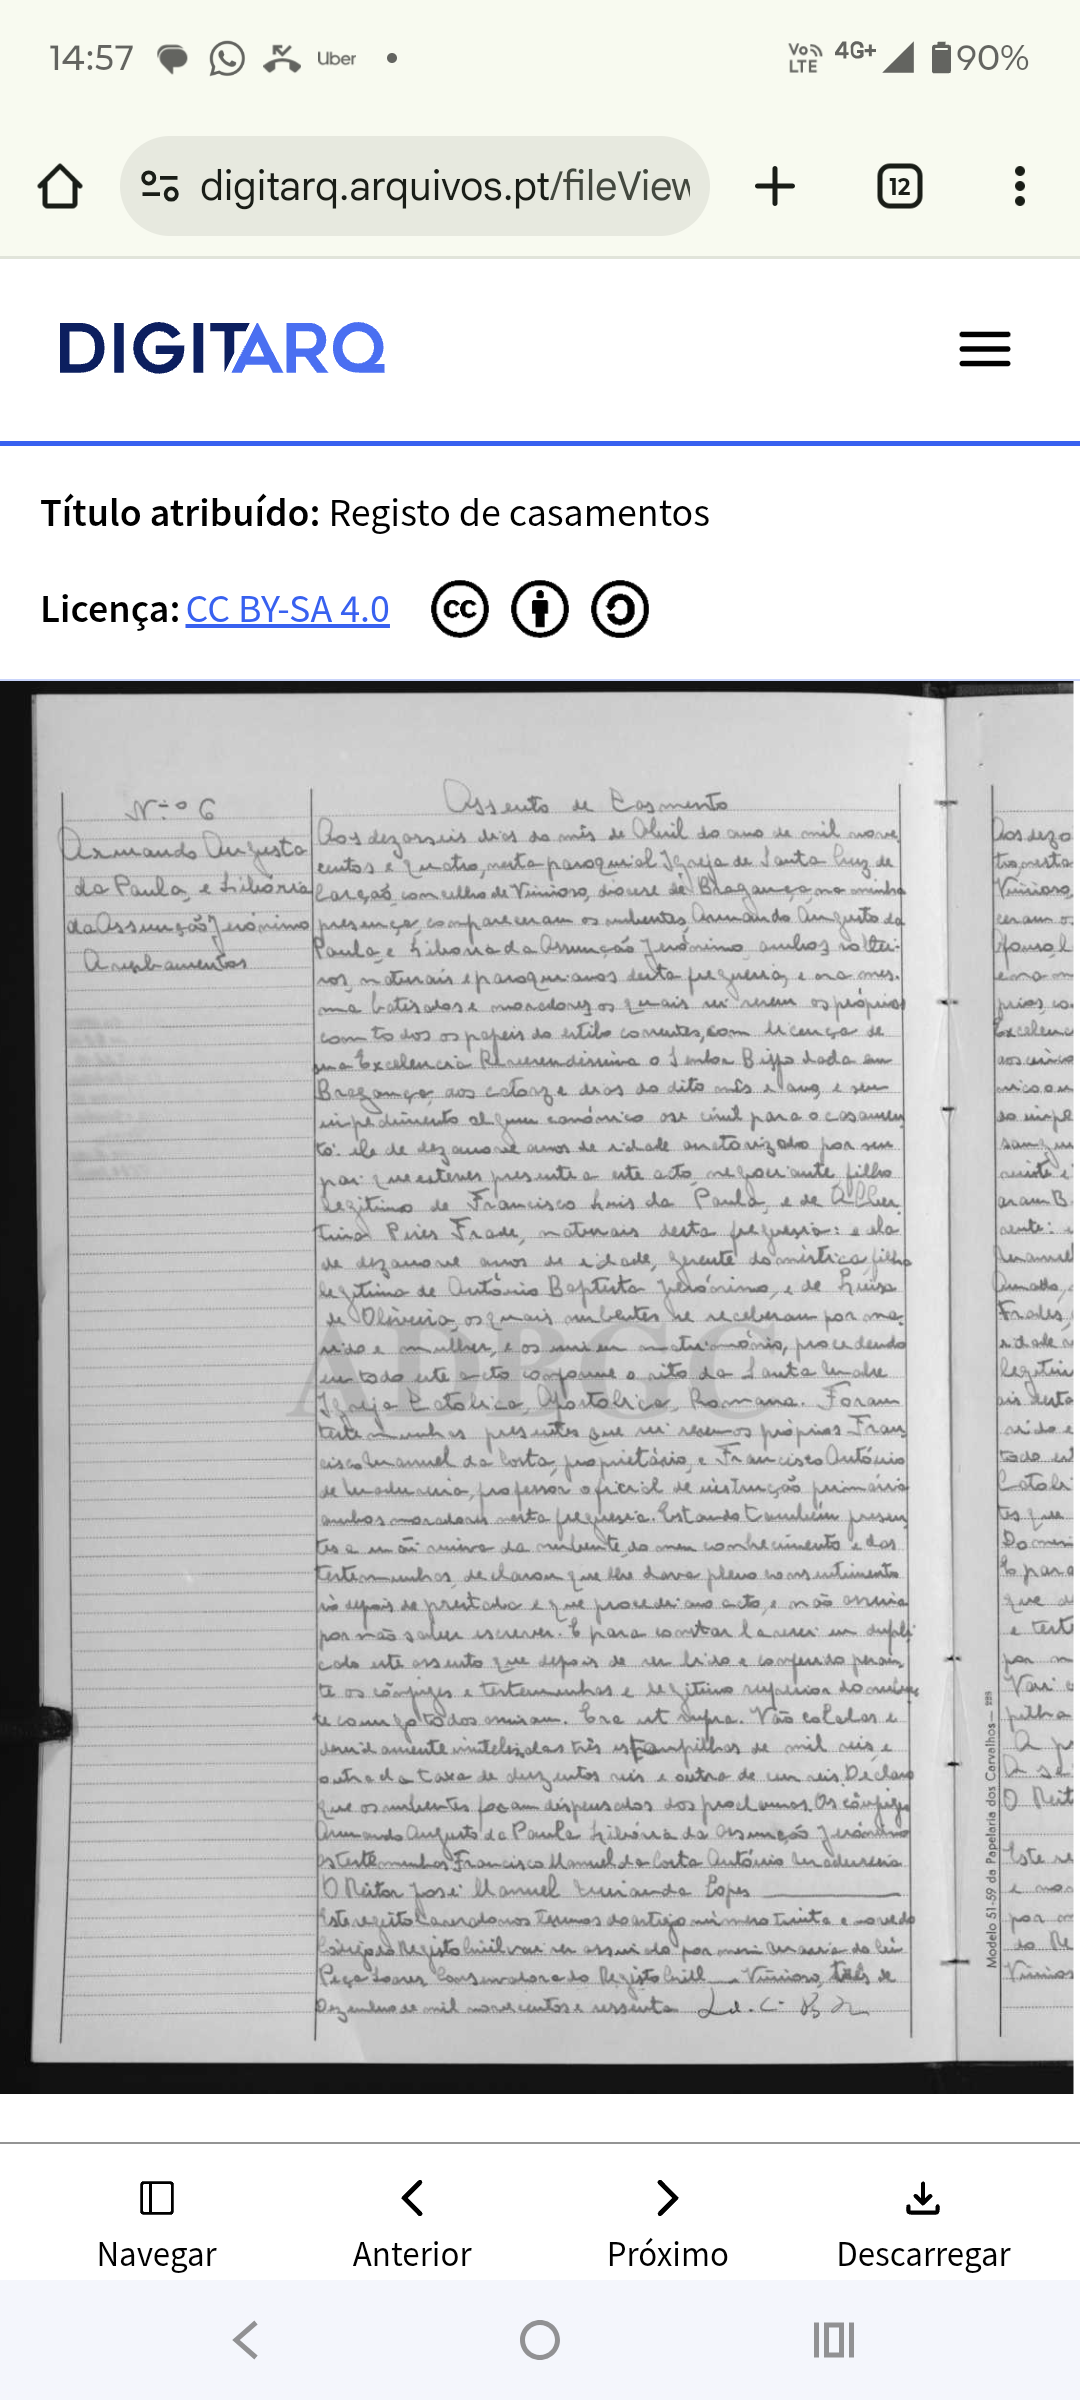 14:57 Uber VoLTE 4G+ 90%
digitarq.arquivos.pt/fileView 12
DIGITARQ
Título atribuído: Registo de casamentos
Licença: CC BY-SA 4.0
N.º 6
Armando Augusto
da Paula, e Libória
da Assunção Jerónimo
Assento de Casmento
Aos dezasseis dias do mês de Abril do ano de mil nove
centos e quatro, nesta paroquial Igreja de Santa Cruz de
Carção, concelho de Vimioso, diocese de Bragança, na minha
presença compareceram os nubentes, Armando Augusto da
Paula, e Liboria da Assunção Jerónimo, ambos soltei-
ros, naturais e paroquianos desta freguesia, e na mes-
ma batisados e moradores os quais sei serem os próprios
com todos os papeis do estilo correntes, com licença de
sua Excelencia Reverendissima o Senhor Bispo dada em
Bragança, aos catorze dias do dito mês e ano, e sem
impedimento algum canónico ou civil para o casamen
to: ele de dezanove anos de idade autorizado por seu
pai que esteve presente a este acto, negociante, filho
legitimo de Francisco Luis da Paula, e de Alber
tina Pires Frade, naturais desta freguesia: e ela
de dezanove anos de idade, gerente doméstica, filha
legitima de António Baptista Jerónimo, e de Luisa
de Oliveira, os quais nubentes se receberam por ma-
rido e mulher, e os uni em matrimónio, procedendo
em todo este acto conforme o rito da Santa Madre
Igreja Catolica, Apostolica, Romana. Foram
testemunhas presentes que sei serem os próprios Fran
cisco Manuel da Costa, proprietário, e Francisco António
de Madureira, professor oficial de instrução primária
ambos moradores nesta freguesia. Estando também presen
te a mãi viuva da nubente, do meu conhecimento e das
testemunhas, declarou que lhe dava pleno consentimento
por não saber escrever. E para constar lavrei em dupli
cado este assento que depois de ser lido e conferido peran
te os cônjuges e testemunhas e legitimo superior do nuben
te comigo todos assinam. Era ut supra. Vão coladas e
devidamente inutelizadas três estampilhas de mil reis, e
outra da taxa de duzentos reis e outra de cem reis. Declaro
que os nubentes foram dispensados dos proclamas. Os cônjuges
Armando Augusto da Paula Libória da Assunção Jerónimo
As testemunhas Francisco Manuel da Costa António Madureira
O Reitor José Manuel Miranda Lopes
Este registo lavrado nos termos do artigo número trinta e nove do
Código do Registo Civil vai ser assinado por mim
Conservadora do Registo Civil Vimioso, três de
Dezembro de mil novecentos e sessenta
Modelo 51-59 da Papelaria dos Carvalhos
Navegar Anterior Próximo Descarregar